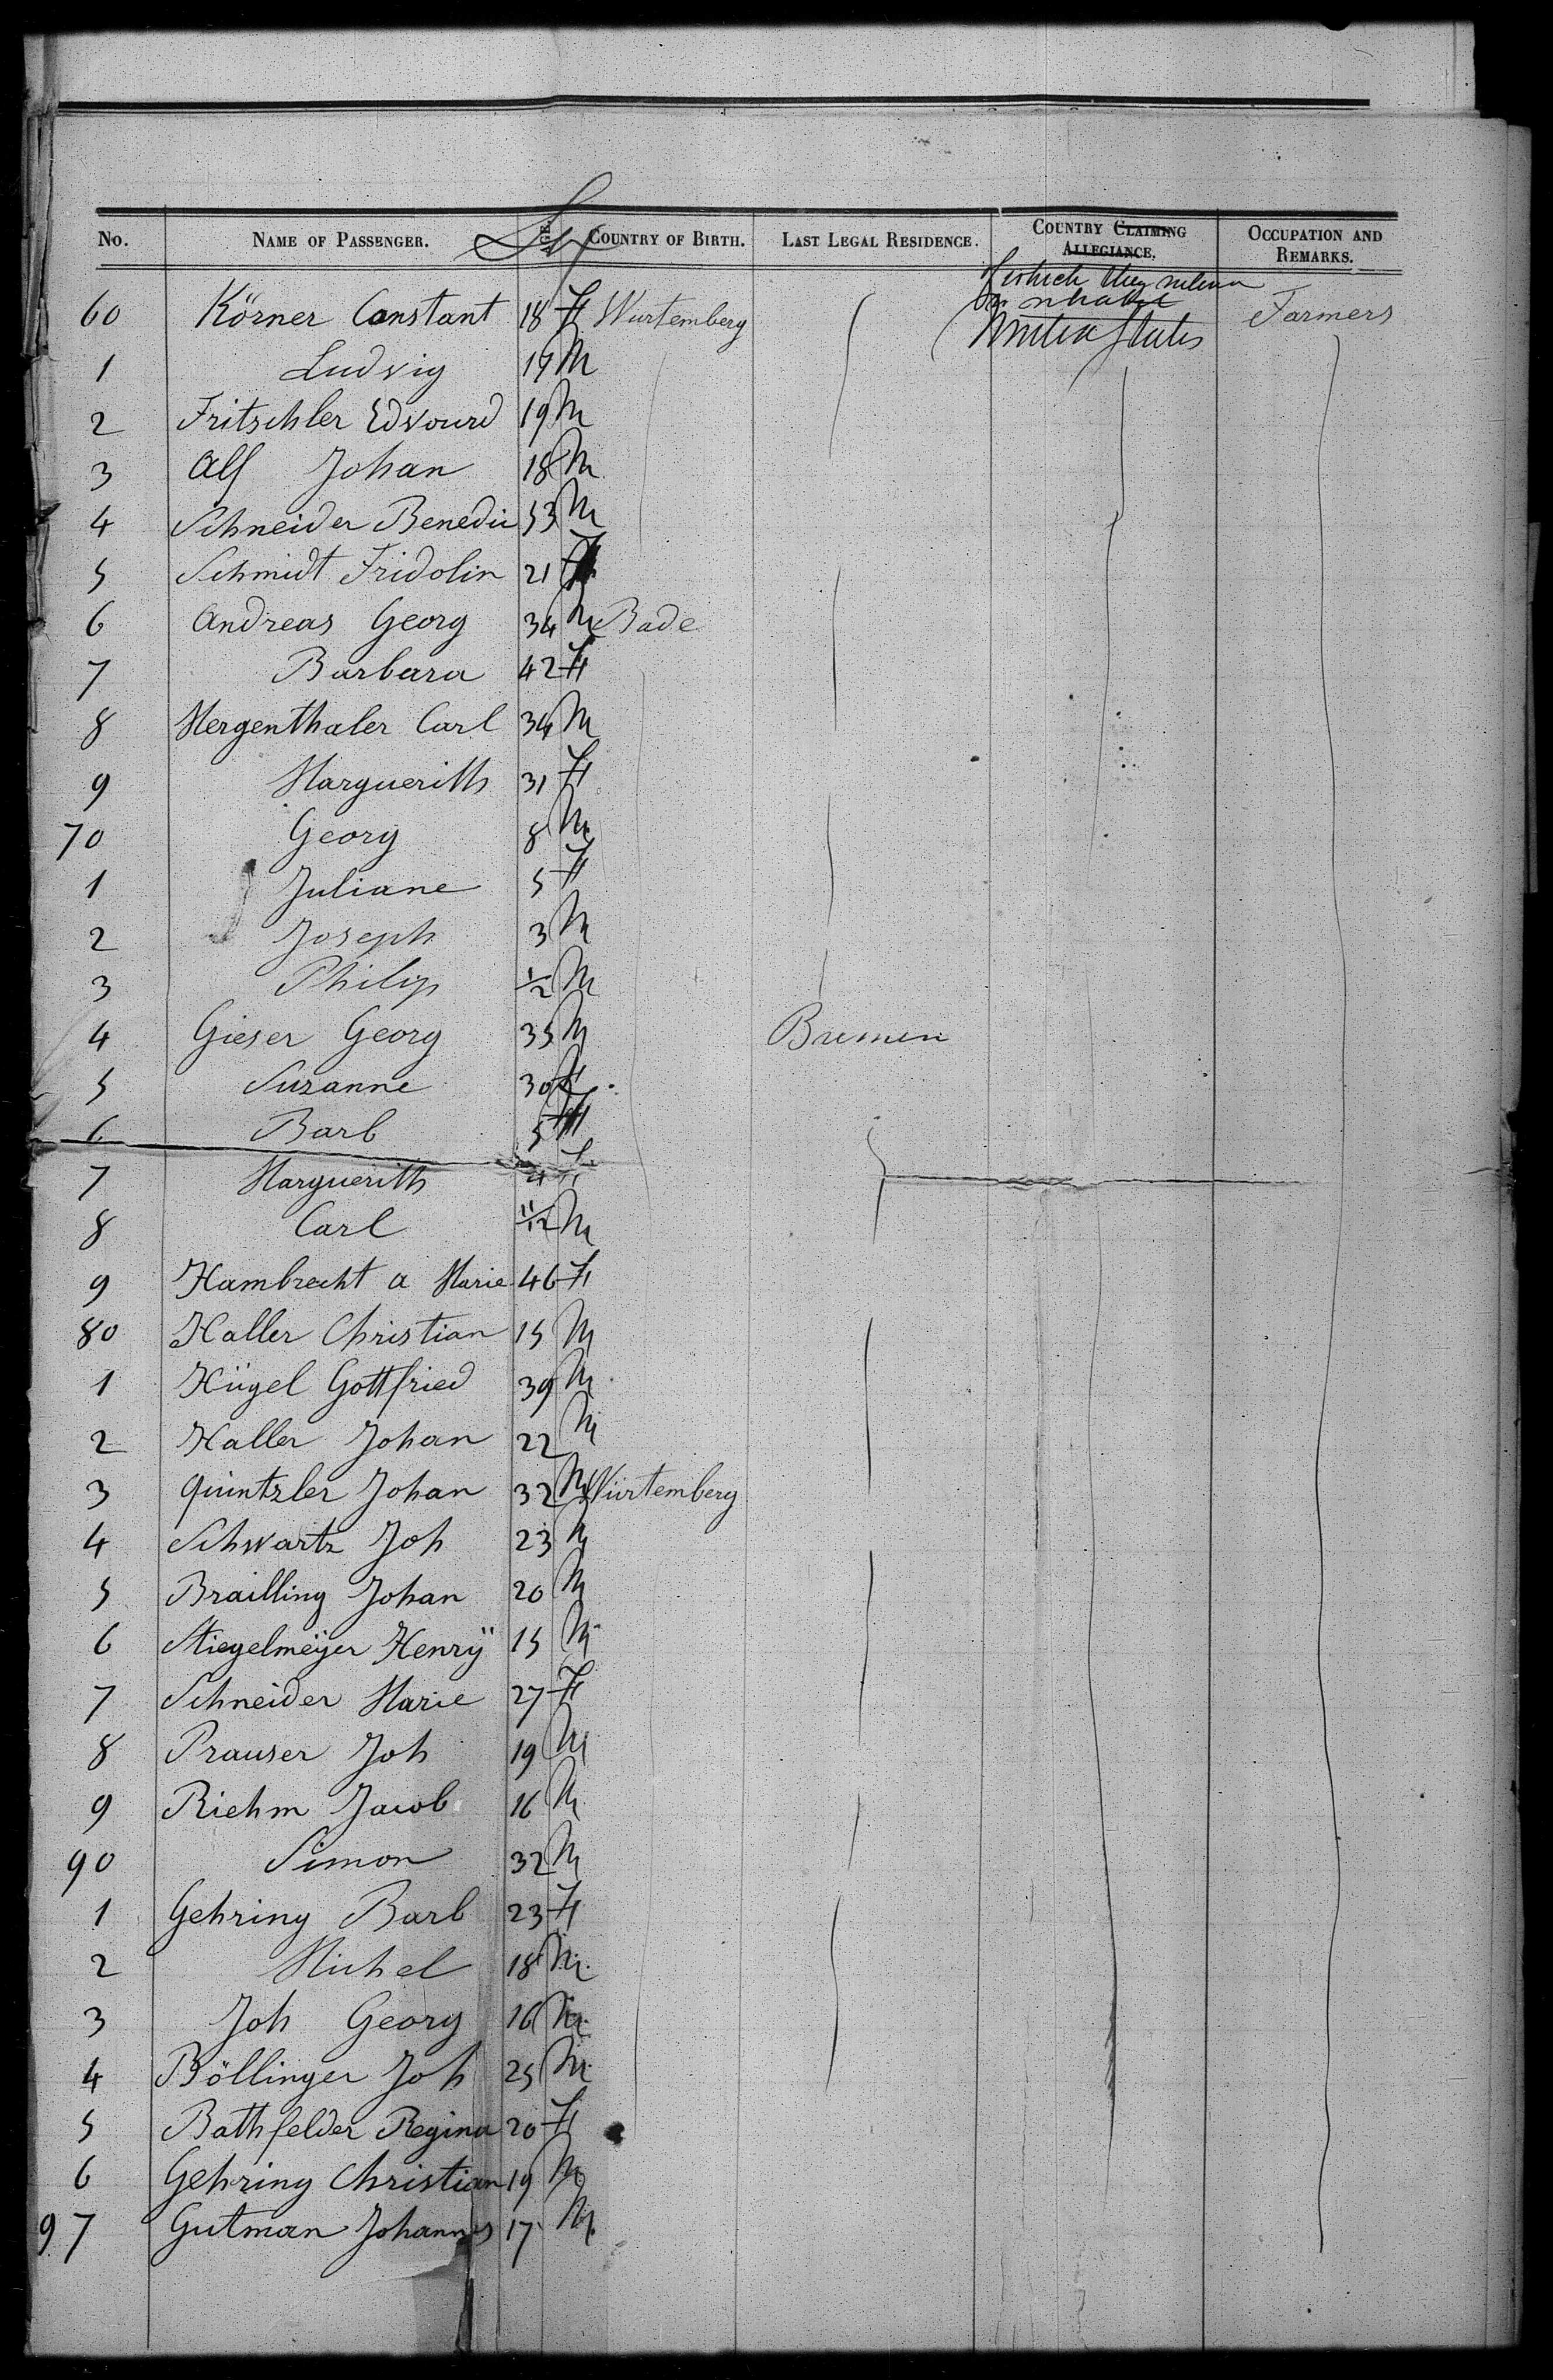 No. NAME OF PASSENGER. AGE. Sex COUNTRY OF BIRTH. LAST LEGAL RESIDENCE. COUNTRY CLAIMING ALLEGIANCE. OCCUPATION AND REMARKS.
of which they
60 Körner Constant 18 F Wurtemberg United States Farmers
1 Ludvig 17 M
2 Fritschler Edvourd 19 M
3 Alf Johan 18 M
4 Schneider Benedic 53 M
5 Schmidt Fridolin 21
6 Andreas Georg 34 M Bade
7 Barbara 42 F
8 Mergenthaler Carl 34 M
9 Marguerith 31 F
70 Georg 8 M
1 Juliane 5 F
2 Joseph 3 M
3 Philip 1/2 M
4 Gieser Georg 35 M Bremen
5 Suzanne 30 F
6 Barb 5 F
7 Marguerith 4 F
8 Carl 11/12 M
9 Hambrecht a Marie 46 F
80 Haller Christian 15 M
1 Hügel Gottfried 39 M
2 Haller Johan 22 M
3 Quintzler Johan 32 M Würtemberg
4 Schwartz Joh 23 M
5 Brailling Johan 20 M
6 Stiegelmeÿer Henrÿ 15 M
7 Schneider Marie 27 F
8 Prauser Joh 19 M
9 Riehm Jacob 16 M
90 Simon 32 M
1 Gehring Barb 23 F
2 Michel 18 M
3 Joh Georg 16 M
4 Böllinger Joh 25 M
5 Bathfelder Regina 20 F
6 Gehring Christian 19 M
97 Gutman Johannes 17 M